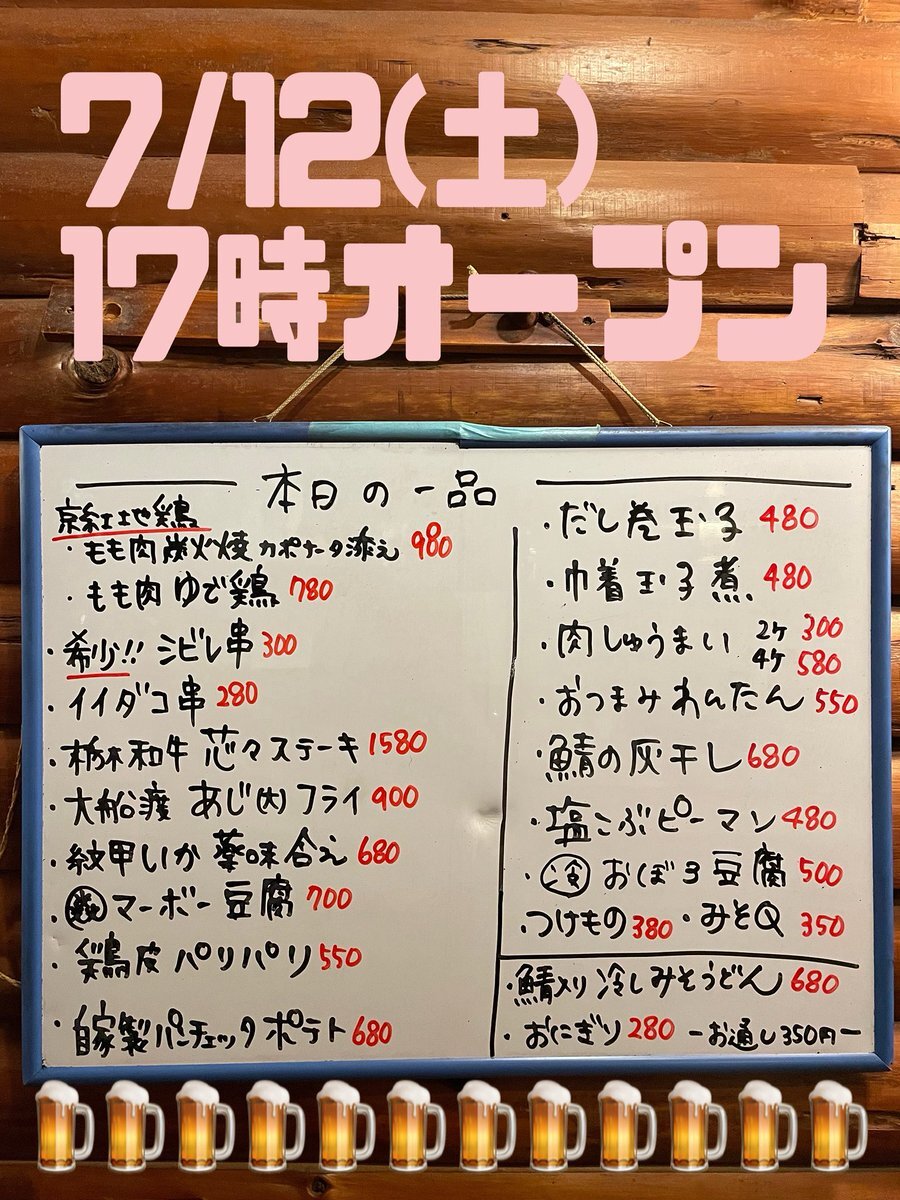 7/12(土)
17時オープン
本日の一品
京紅地鶏
・もも肉炭火焼 カポナータ添え 980
・もも肉 ゆで鶏 780
・希少!! シビレ串 300
・イイダコ串 280
・栃木和牛 芯々ステーキ 1580
・大船渡 あじ(大)フライ 900
・紋甲いか 薬味合え 680
・マーボー豆腐 700
・鶏皮パリパリ 550
・自家製パンチェッタポテト 680
・だし巻玉子 480
・巾着玉子煮 480
・肉しゅうまい 2ケ 300
4ケ 580
・おつまみわんたん 550
・鯖の灰干し 680
・塩こぶピーマン 480
・冷 おぼろ豆腐 500
・つけもの 380 ・みそQ 350
・鯖入り冷しみそうどん 680
・おにぎり 280 ーお通し350円ー